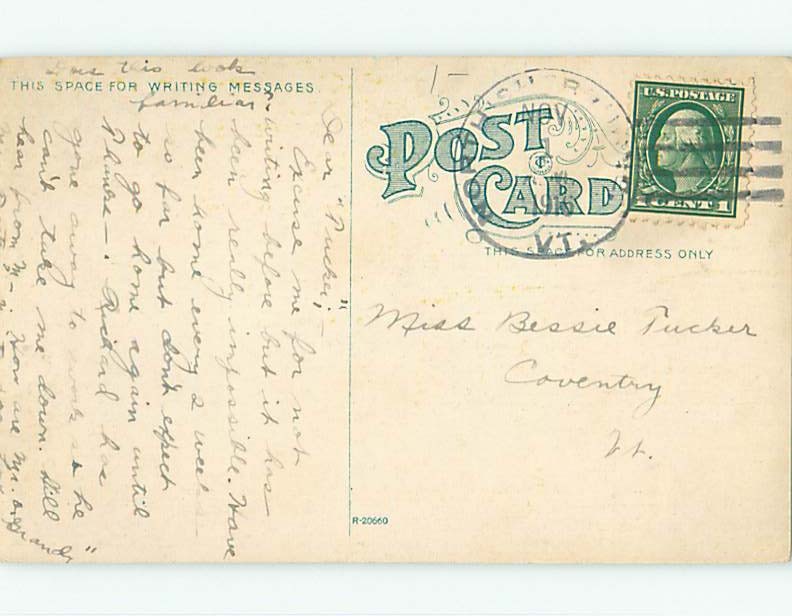 Does this look
THIS SPACE FOR WRITING MESSAGES
familiar?
Dear "Tucker",-
Excuse me for not
writing before but it has
been really impossible. Have
been home every 2 weeks
so far but don't expect
to go home again until
Thanks-. Richard has
gone away to work so he
can't take me down. Still
hear from M-n. How are "Mr. & Grandy"
1-
POST CARD
ST. JOHNSBURY
NOV
1
1916
VT.
U.S. POSTAGE
1 CENT 1
THIS SPACE FOR ADDRESS ONLY
Miss Bessie Tucker
Coventry
Vt.
R-20660